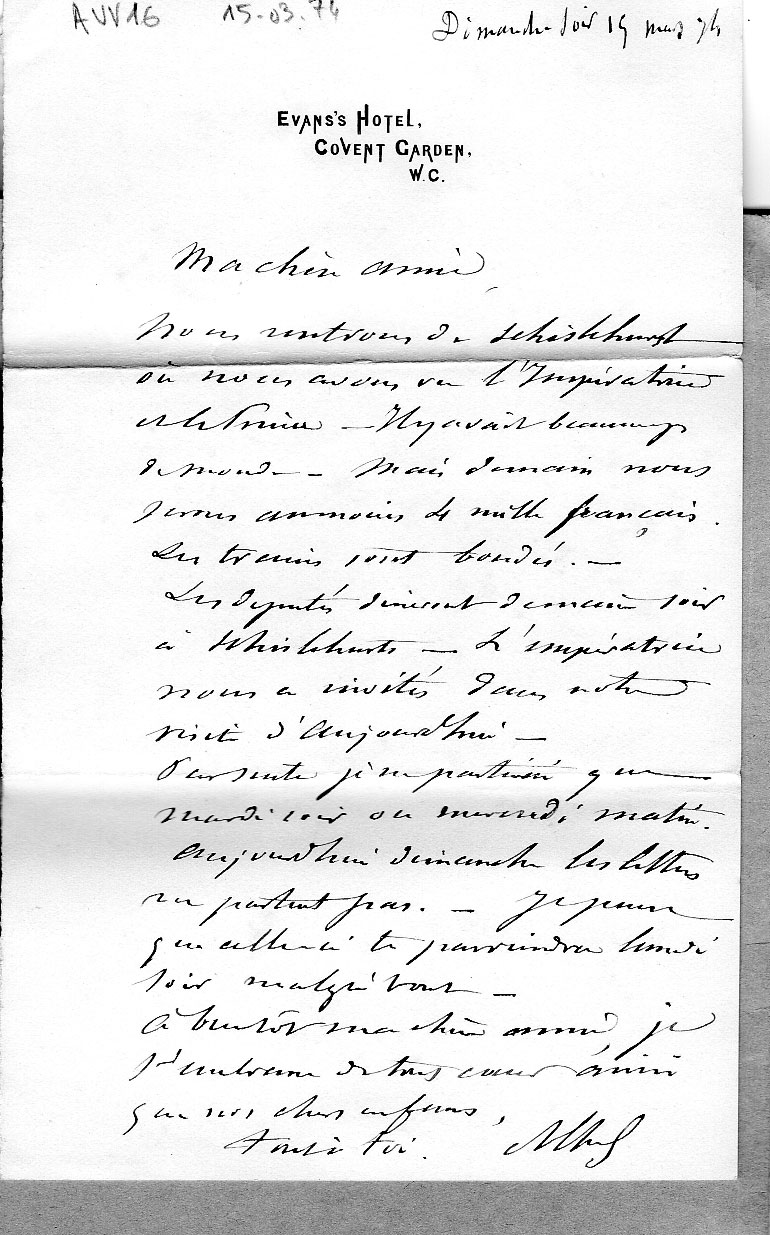 AVV16 15-03.74
Dimanche soir 15 mars 74
EVANS'S HOTEL,
COVENT GARDEN,
W.C.
Ma chère amie,
Nous rentrons de Schislehurst
où nous avons vu l'Impératrice
et le Prince — Il y avait beaucoup
de monde — Mais demain nous
serons au moins 4 mille français.
Les trains sont bondés. —
Les députés dineront demain soir
à Schislehurts — L'impératrice
nous a invités dans notre
visite d'aujourd'hui —
Par suite je ne partirai que
mardi soir ou mercredi matin.
Aujourd'hui dimanche les lettres
ne partent pas. — Je pense
que celle ci te parviendra lundi
soir malgré tout —
à bientôt ma chère amie, je
t'embrasse de tout cœur ainsi
que nos chers enfans,
tout à toi.